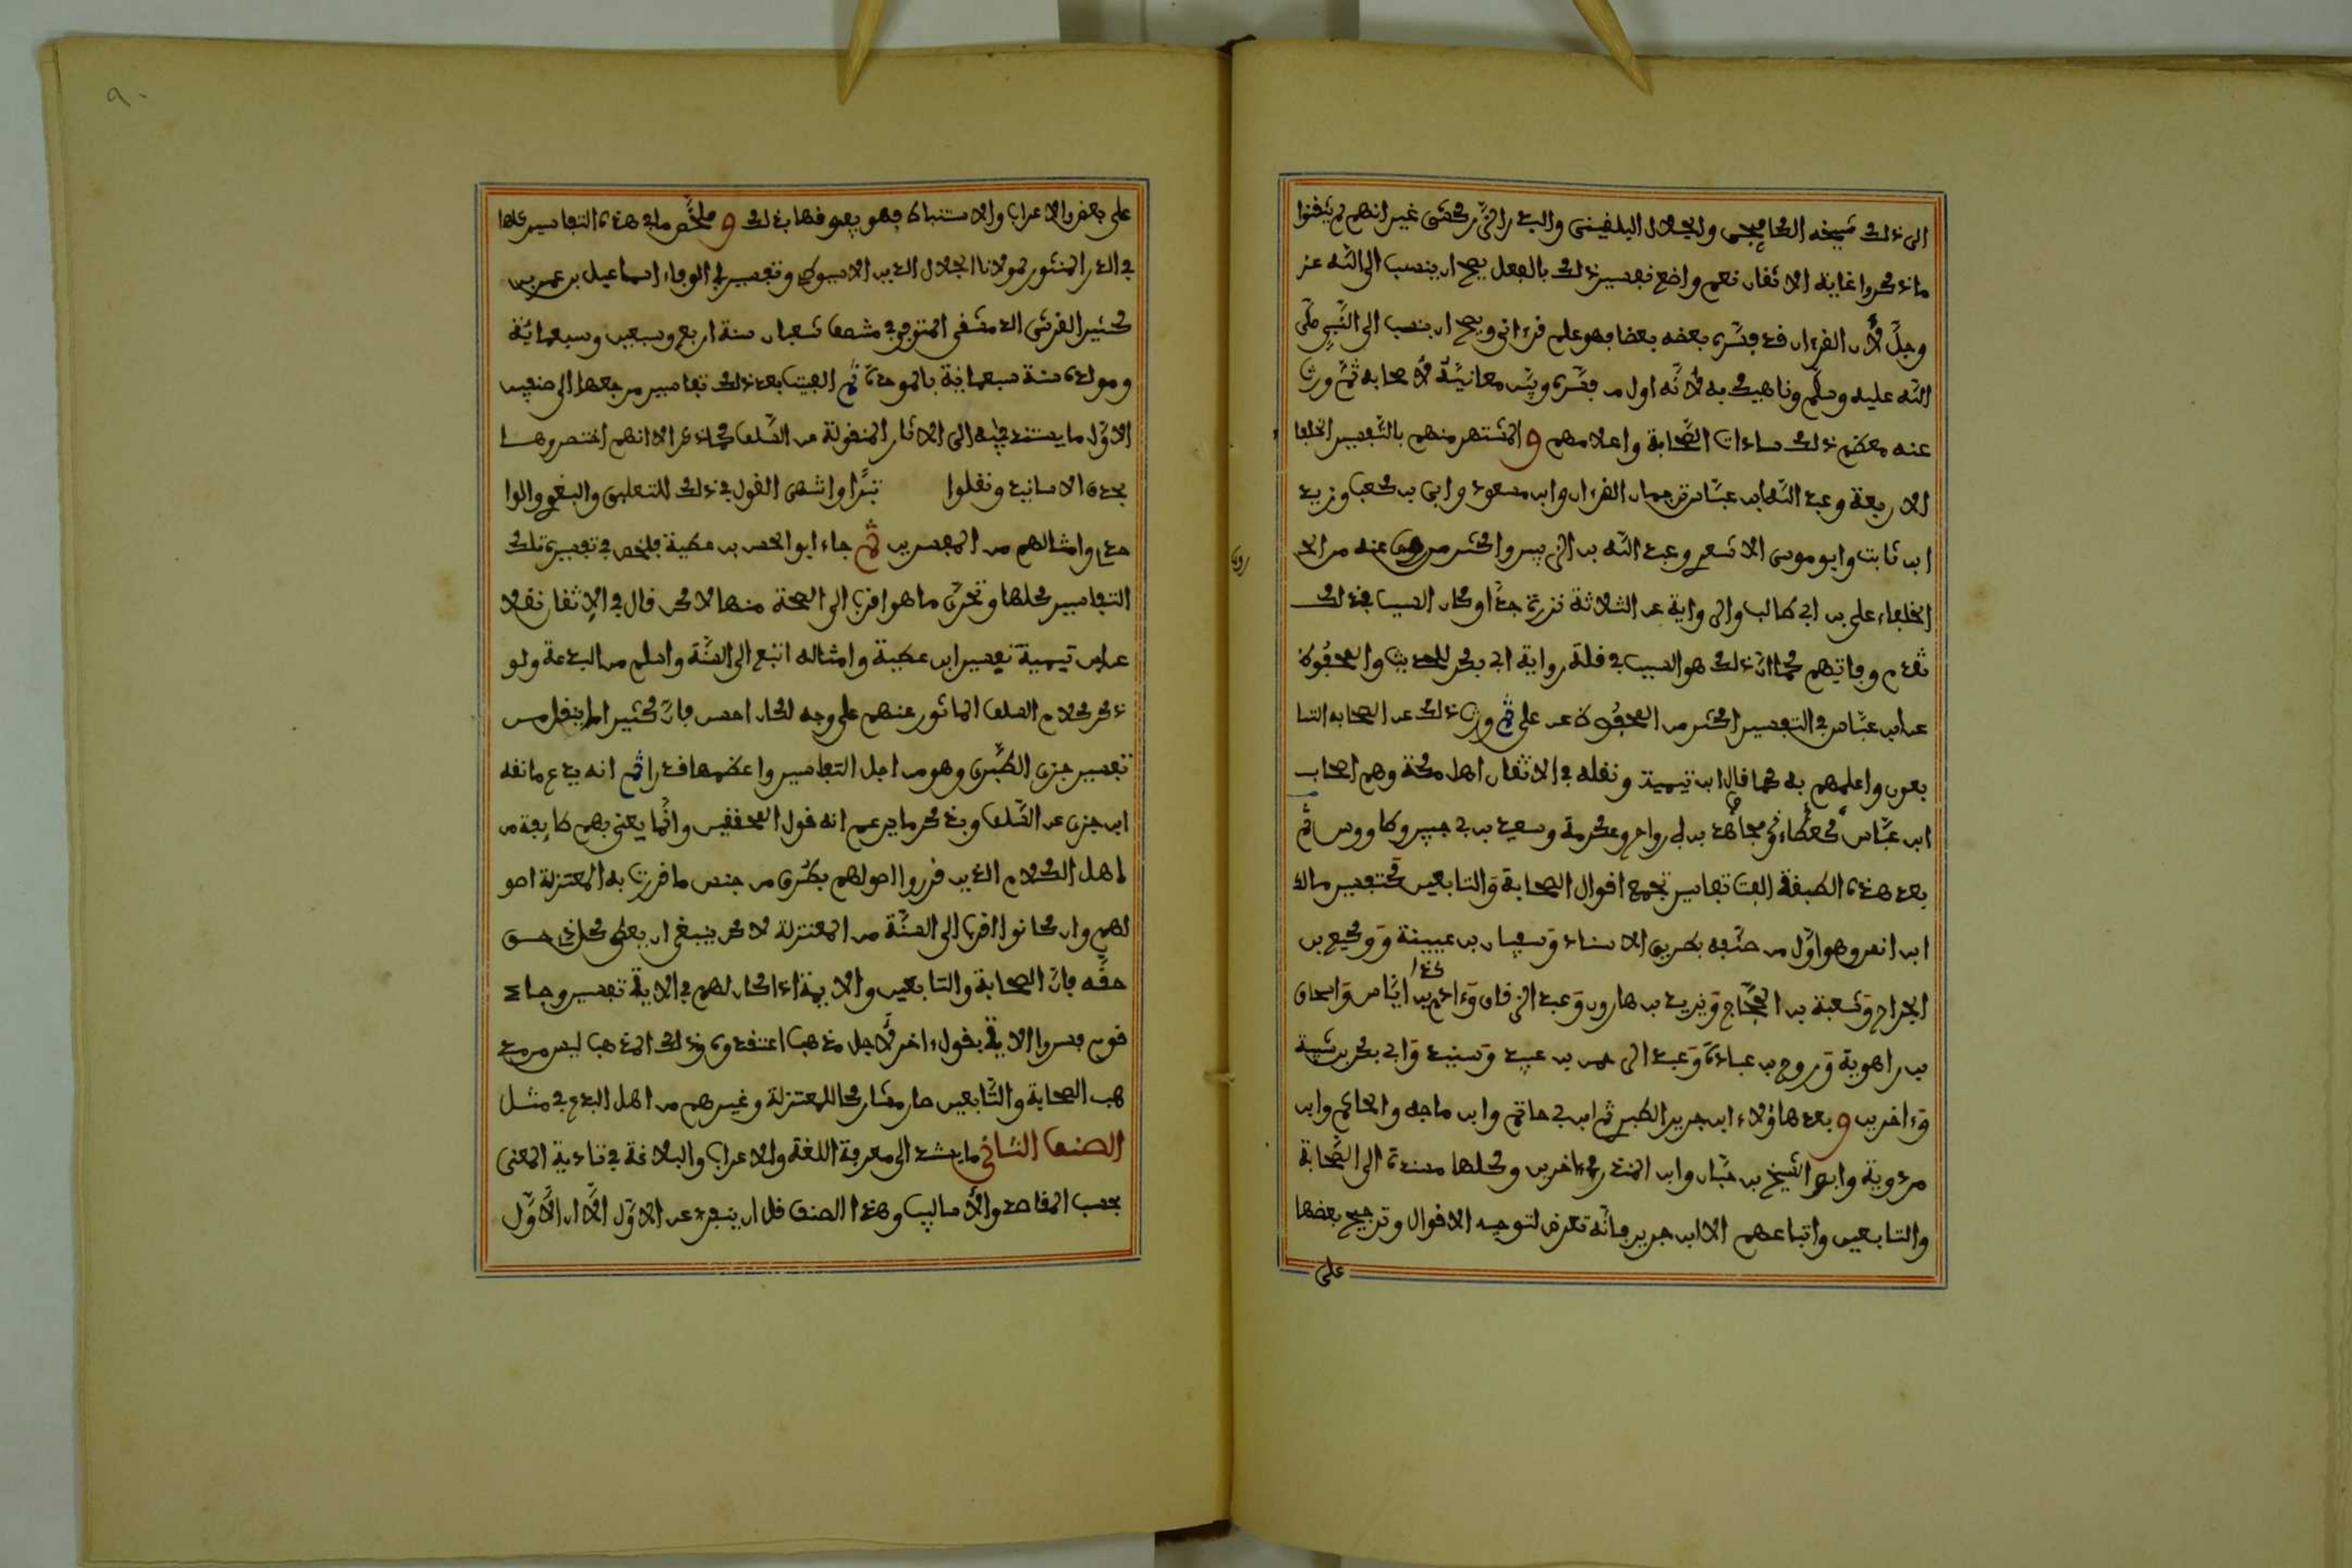 الى ذلك شيخه الكافيجي والجلال البلقيني والبدر الزركشي غير انهم لم يتقنوا
ما ذكروا غاية الاتقان نعم واضع تفسير ذلك بالفعل يصح ان ينسب الى الله عز
وجل لأن القرءان قد فسر بعضه بعضا فهو علم قرءاني ويصح ان ينسب الى النبي صلى
الله عليه وسلم وناهيك به لأنه اول من فسره وبين معانيه لأصحابه ثم ورث
عنه معظم ذلك سادات الصحابة واعلامهم و المشتهر منهم بالتفسير الخلفا
الاربعة وعبد الله ابن عباس ترجمان القرءان وابن مسعود وابي بن كعب وزيد
ابن ثابت وابو موسى الاشعري وعبد الله بن الزبير واكثر من روي عنه من الـ
الخلفاء علي بن ابي طالب والرواية عن الثلاثة نزرة جدا وكان السبب في ذلك
تقدم وفاتهم كما ان ذلك هو السبب في قلة رواية ابي بكر للحديث والمحفوظ
عن ابن عباس في التفسير اكثر من المحفوظ عن علي ثم ورث ذلك عن الصحابه التا
بعون واعلمهم به كما قال ابن تيمية ونقله في الاتقان اهل مكة وهم اصحاب
ابن عباس كعطاء ومجاهد بن ابي رواح وعكرمة وسعيد بن جبير وطاووس ثم
بعد هذه الطبقة الفت تفاسير تجمع اقوال الصحابة والتابعين كتفسير مالك
ابن انس وهو اول من صنفه بطريق الاسناد وسفيان بن عيينة ووكيع بن
الجراح وشعبة بن الحجاج ويزيد بن هارون وعبد الرزاق وءادم بن اياس واسحاق
كذا
بن راهوية وروح بن عبادة وعبد الرحمن بن عبيد وسنيد وابي بكر بن شيبة
وءاخرين و بعد هاؤلاء ابن جرير الطبري ثم ابن ابي حاتم وابن ماجه والحاكم وابن
مردوية وابو الشيخ بن حبان وابن المنذر في ءاخرين وكلها مسندة الى الصحابة
والتابعين واتباعهم الا ابن جرير فانه تعرض لتوجيه الاقوال وترجيح بعضها
على
على بعض والاعراب والاستنباط فهو يفوقها بذلك و ملخص ما في هذه التفاسير كلها
في الدر المنثور لمولانا الجلال الدين الاسيوطي وتفسير ابي الوفاء اسماعيل بن عمر بن
كثير القرشي الدمشقي المتوفي في منتصف شعبان سنة اربع وسبعين وسبعمائة
ومولده سنة سبعمائة بالموحدة ثم الفت بعد ذلك تفاسير مرجعها الى صنفين
الاول ما يستند فيه الى الاثار المنقولة عن السلف كما ذكر الا انهم اختصروها
بحذف الاسانيد ونقلوا تبرا واشهر القول في ذلك للثعلبي والبغوي والوا
حدي وامثالهم من المفسرين ثم جاء ابو الحسن بن عطية فلخص في تفسيره تلك
التفاسير كلها وتحرى ما هو اقرب الى الصحة منها لاكن قال في الاتقان نقلا
عن ابن تيمية تفسير ابن عطية وامثاله اتبع الى السنة واسلم من البدعة ولو
ذكر كلام السلف الماثور عنهم على وجه لكان احسن فان كثيرا ما ينقل من
تفسير جرير الطبري وهو من اجل التفاسير واعظمها قدرا ثم انه يدع ما نقله
ابن جرير عن السلف ويذكر ما يزعم انه قول المحققين وانما يعني بهم طايفة من
اهل الكلام الذين قرروا اصولهم بطرق من جنس ما قررت به المعتزلة اصو
لهم وان كانوا اقرب الى السنة من المعتزلة لاكن ينبغي ان يعطى كل ذي حق
حقه فان الصحابة والتابعين والايمة اذا كان لهم في الاية تفسير وجاء
قوم فسروا الاية بقول ءاخر لأجل مذهب اعتقدوه وذلك المذهب ليس من مذ
هب الصحابة والتابعين صار مشاركا للمعتزلة وغيرهم من اهل البدع في مثل
الصنف الثاني ما يستند الى معرفة اللغة والاعراب والبلاغة في تادية المعنى
بحسب المقاصد والأساليب وهذا الصنف قل ان ينفرد عن الاول الا ان الأول